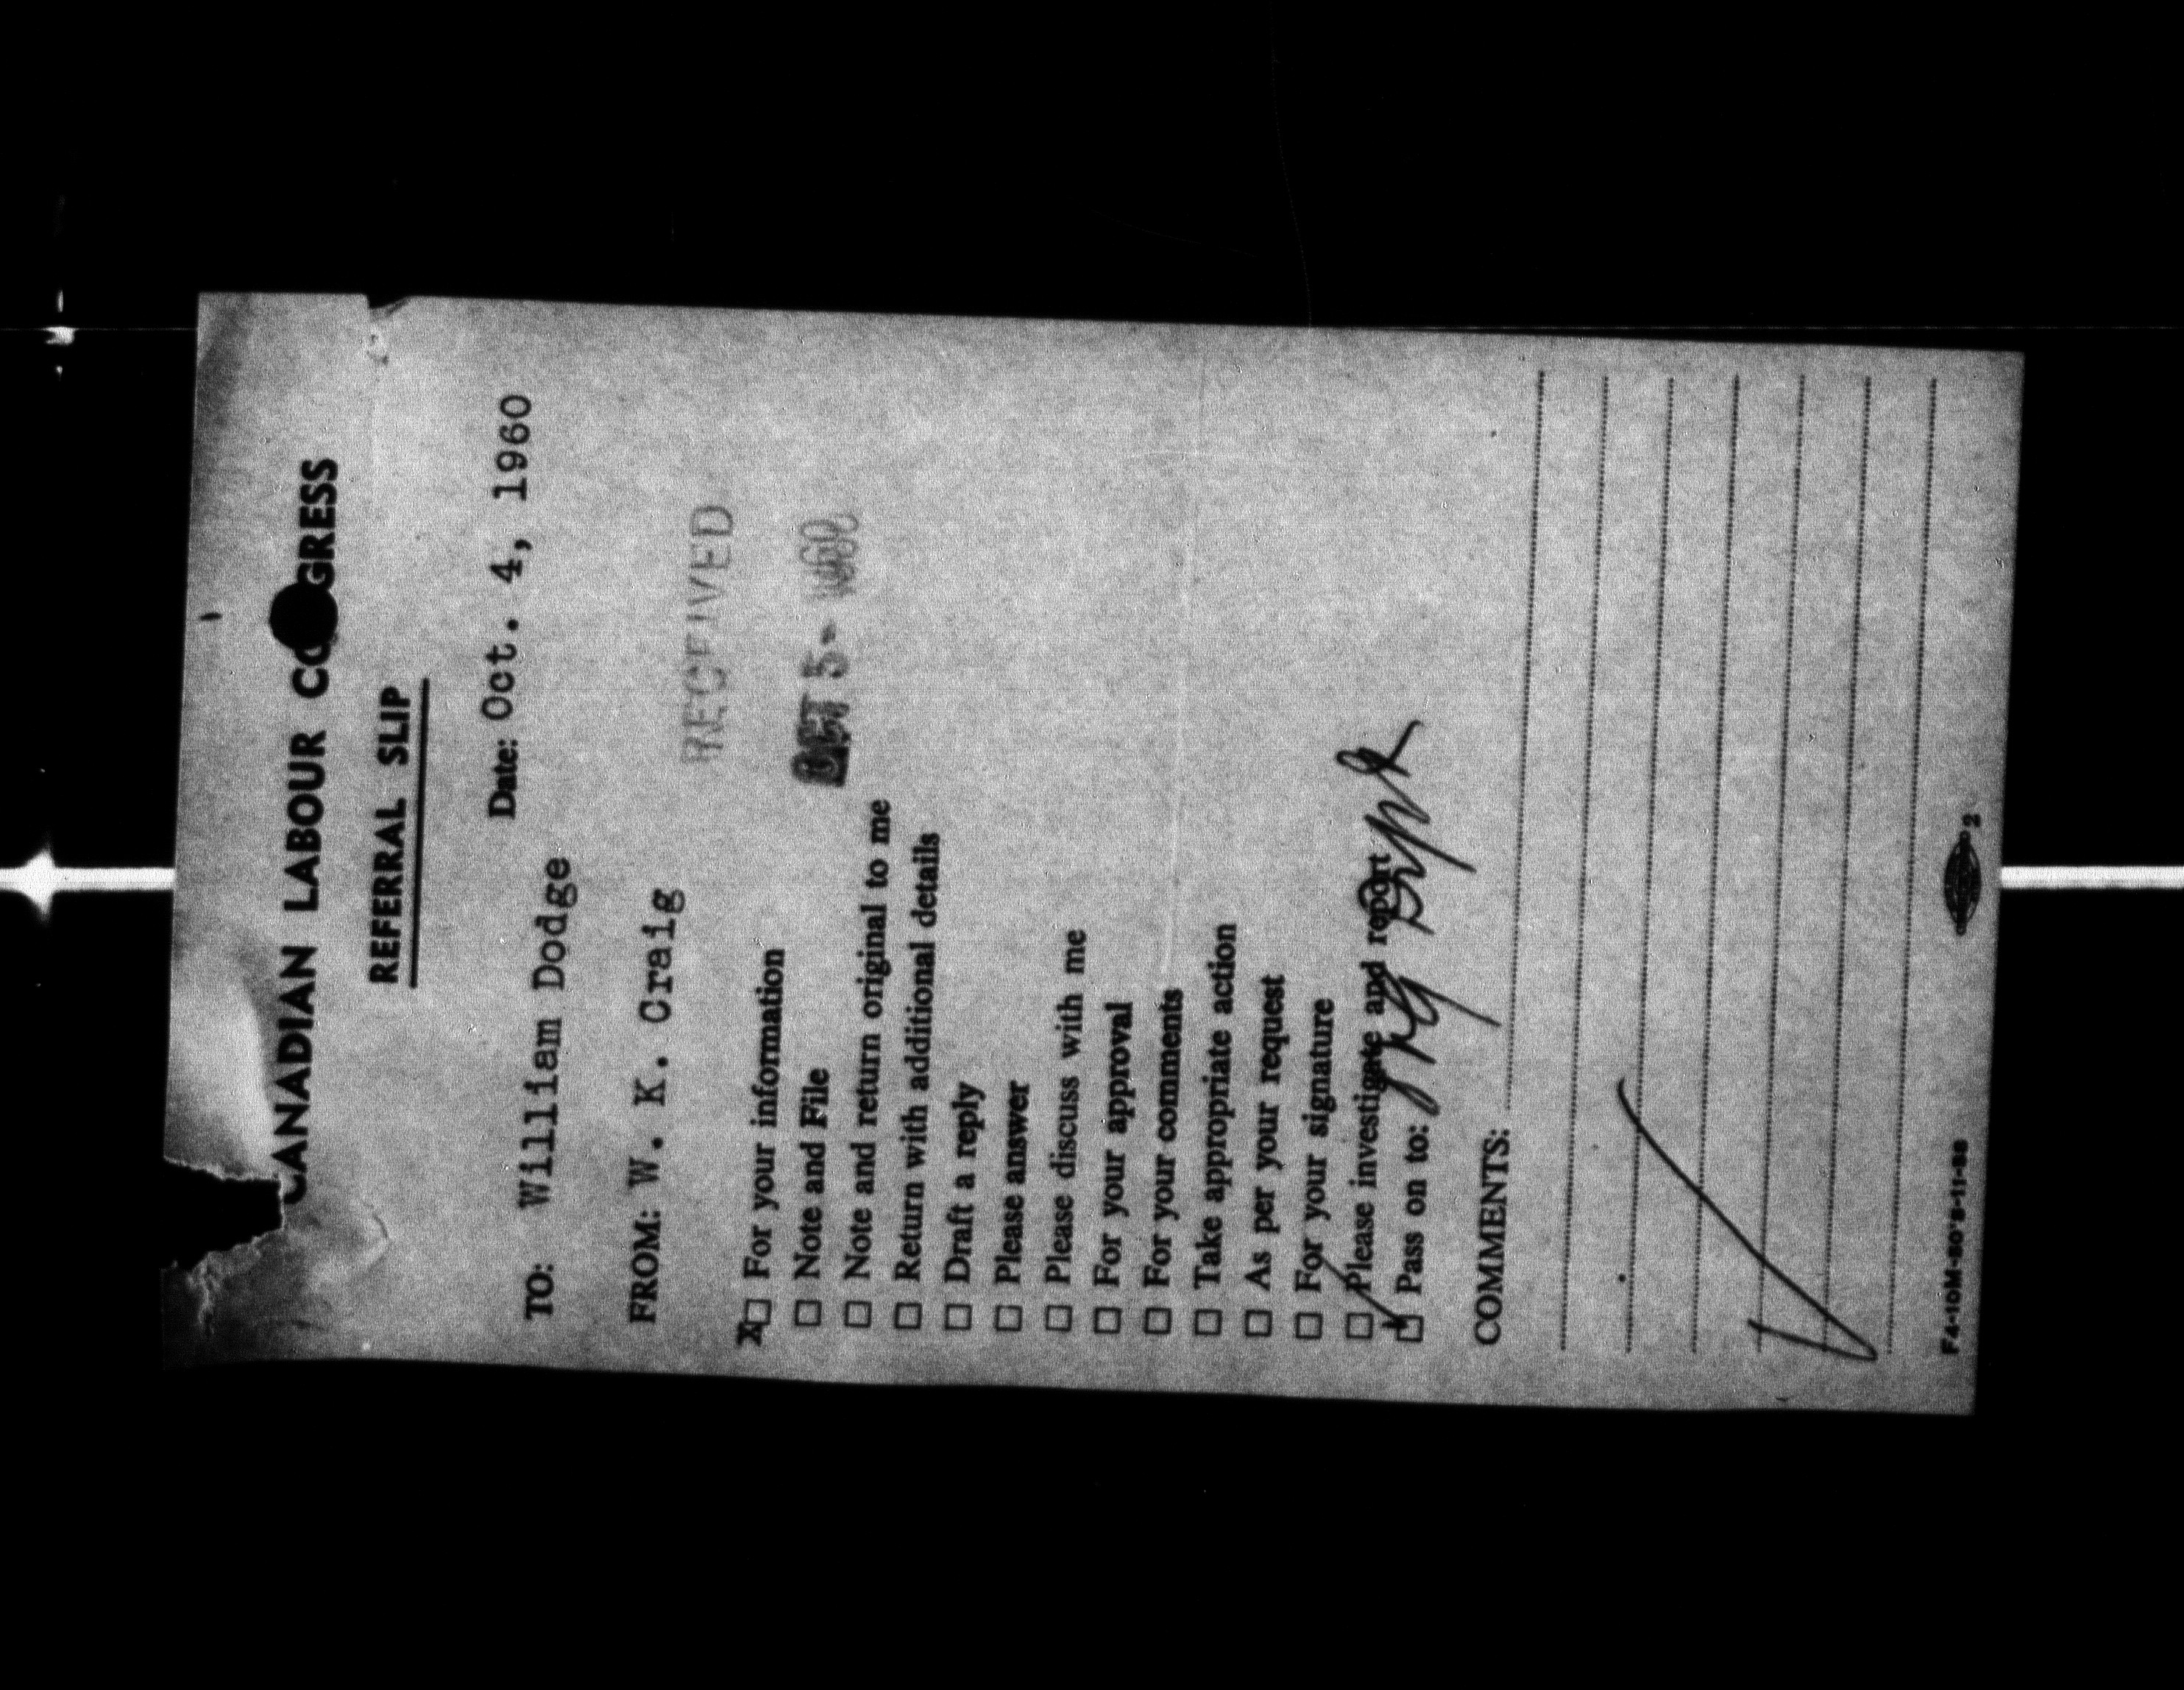 CANADIAN LABOUR CO GRESS
REFERRAL SLIP
Date: Oct. 4, 1960
TO: William Dodge
FROM: W. K. Craig
RECEIVED
OCT 5 - 1960
X□ For your information
□ Note and File
□ Note and return original to me
□ Return with additional details
□ Draft a reply
□ Please answer
□ Please discuss with me
□ For your approval
□ For your comments
□ Take appropriate action
□ As per your request
□ For your signature
□ Please investigate and report
□ Pass on to:
COMMENTS:
2